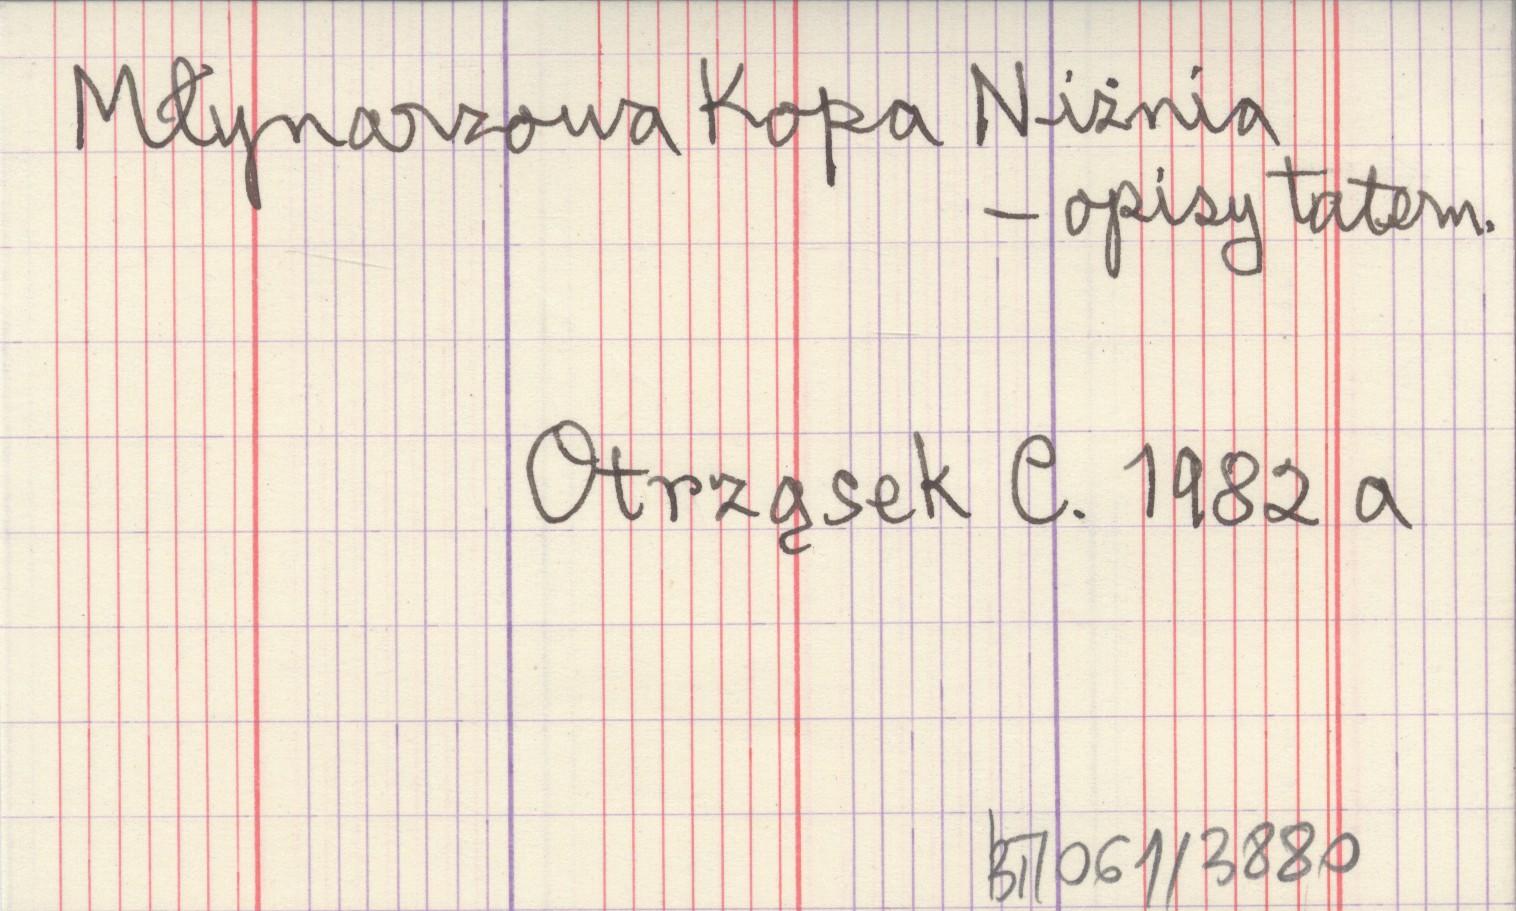 Młynarzowa Kopa Niżnia
- opisy tatern.
Otrząsek C. 1982 a
BT/061/3880